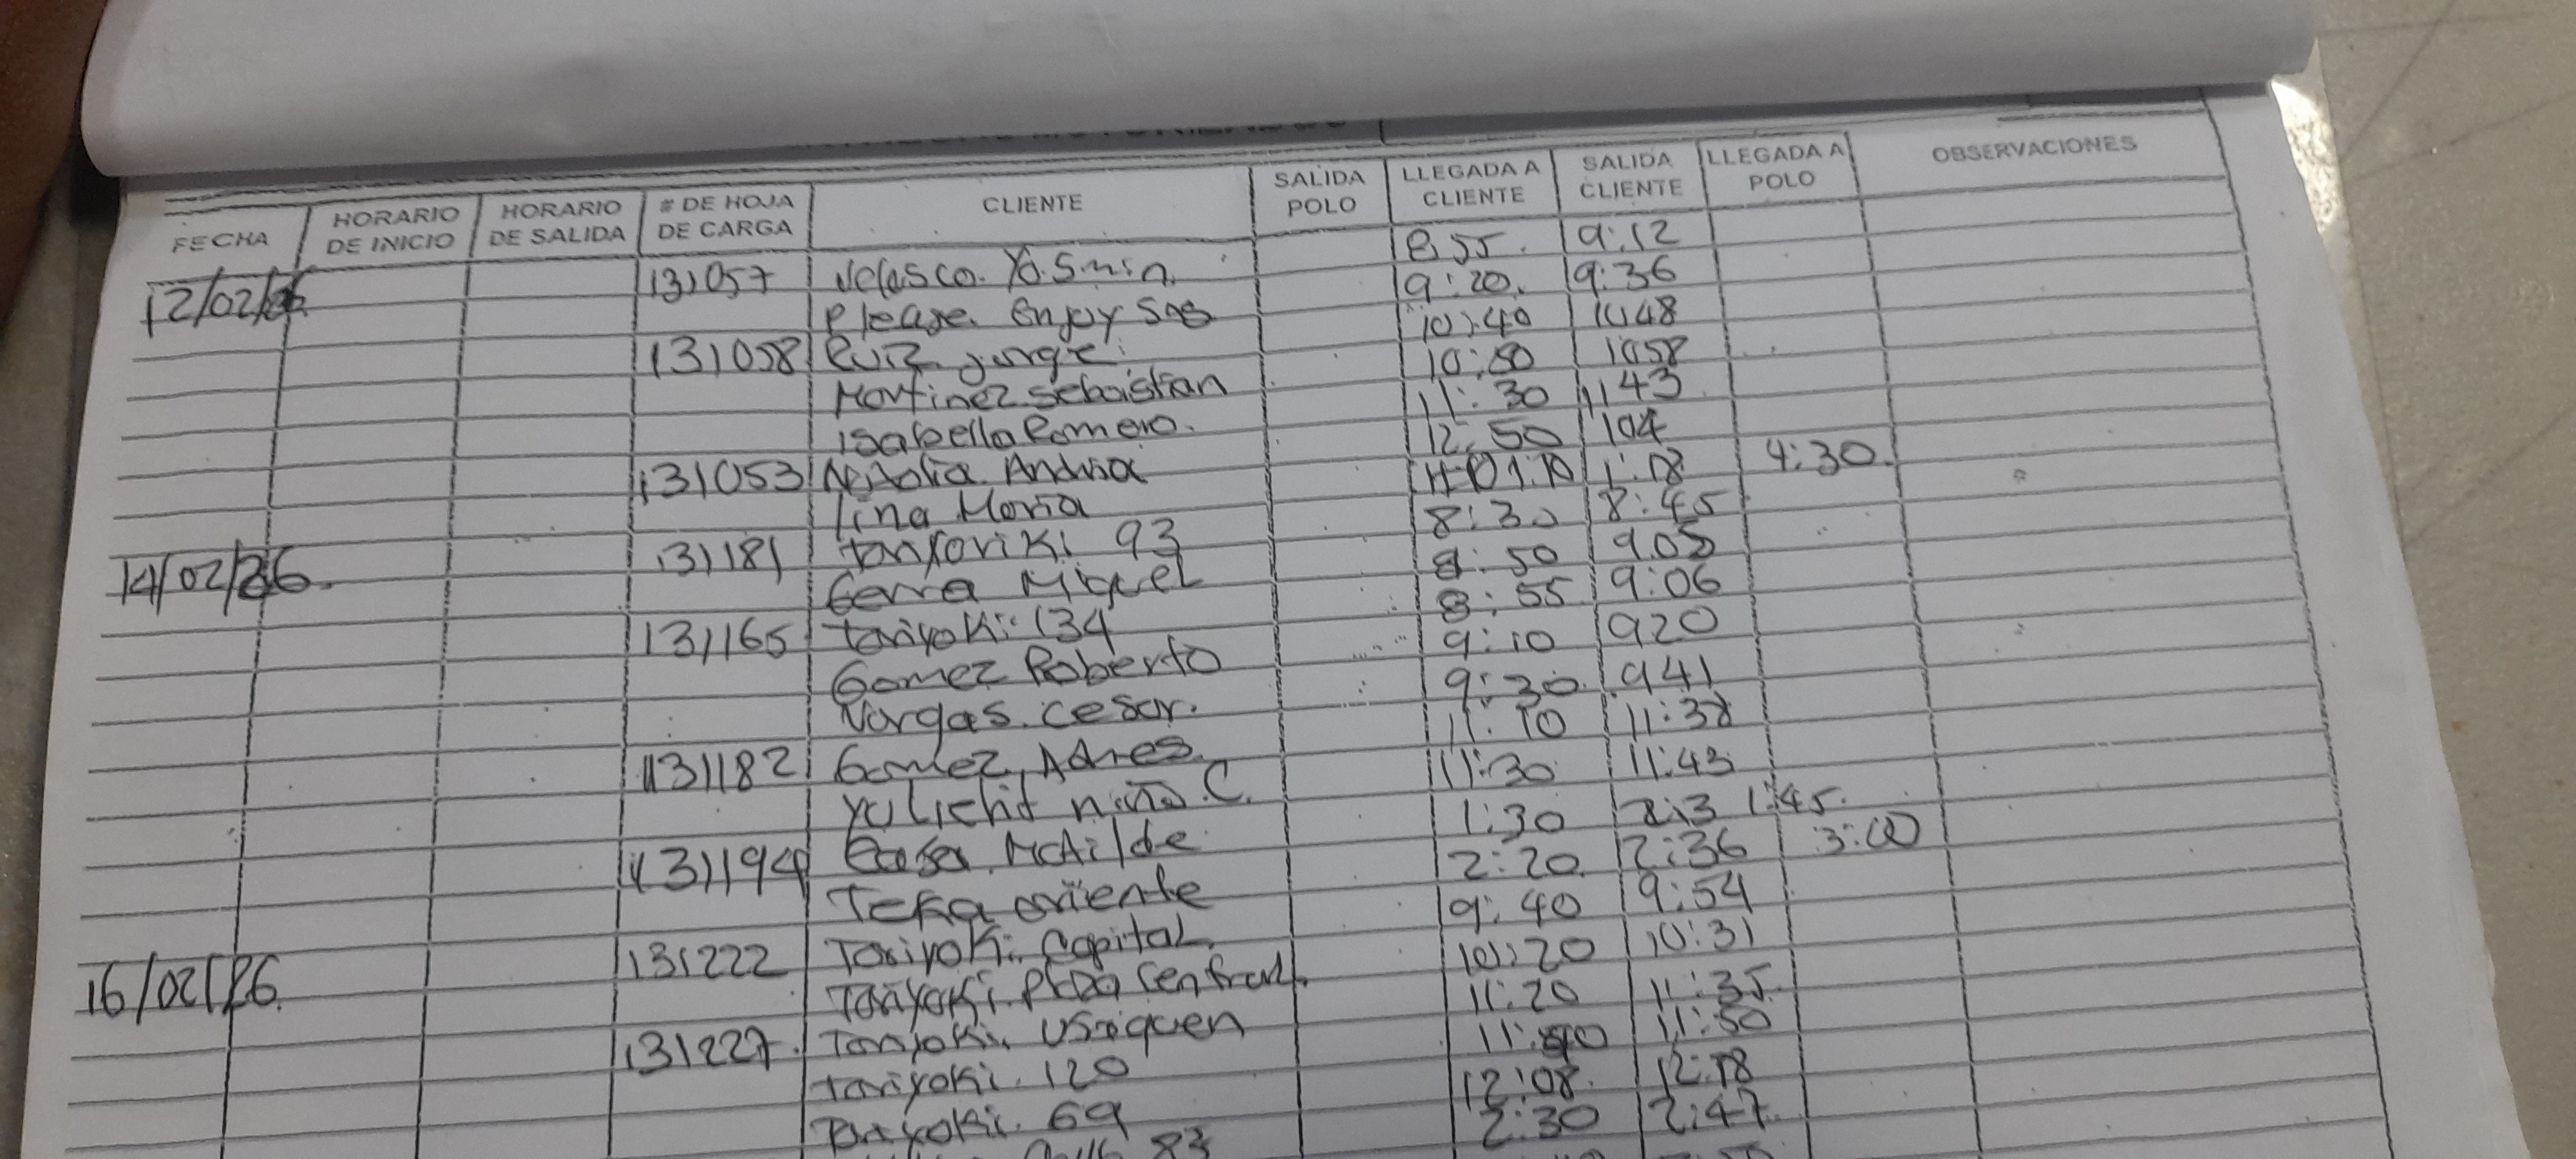 FECHA HORARIO DE INICIO HORARIO DE SALIDA # DE HOJA DE CARGA CLIENTE SALIDA POLO LLEGADA A CLIENTE SALIDA CLIENTE LLEGADA A POLO OBSERVACIONES
12/02/26 131057 Velasco. Yasmin. 8:55. 9:12
Please Enjoy Sas 9:20. 9:36
131058 Ruiz Jorge 10:40 10:48
Martinez Sebastian 10:50 10:58
Isabella Romero. 11:30 11:43
131053 Natalia Andria 12:50 1:04
Lina Maria 1:10 1:18 4:30
14/02/26. 131181 93 8:30 8:45
Miguel 8:50 9:05
131165 Tariyoki 134 8:55 9:06
Gomez Roberto 9:10 9:20
Vargas. Cesar. 9:30 9:41
131182 Gomez, Adres 11:10 11:38
Yulieht niño C. 11:30 11:43
131194 Matilde 1:30 1:45.
Teka oriente 2:20 2:36 3:00
16/02/26. 131222 Tariyoki. Capital. 9:40 9:54
Tariyoki. Plaza Central. 10:20 10:31
131227. Tariyoki. Usaquen 11:20 11:35
Tariyoki. 120 11:40 11:50
Tariyoki. 69 12:08. 12:18
83 2:30 2:47